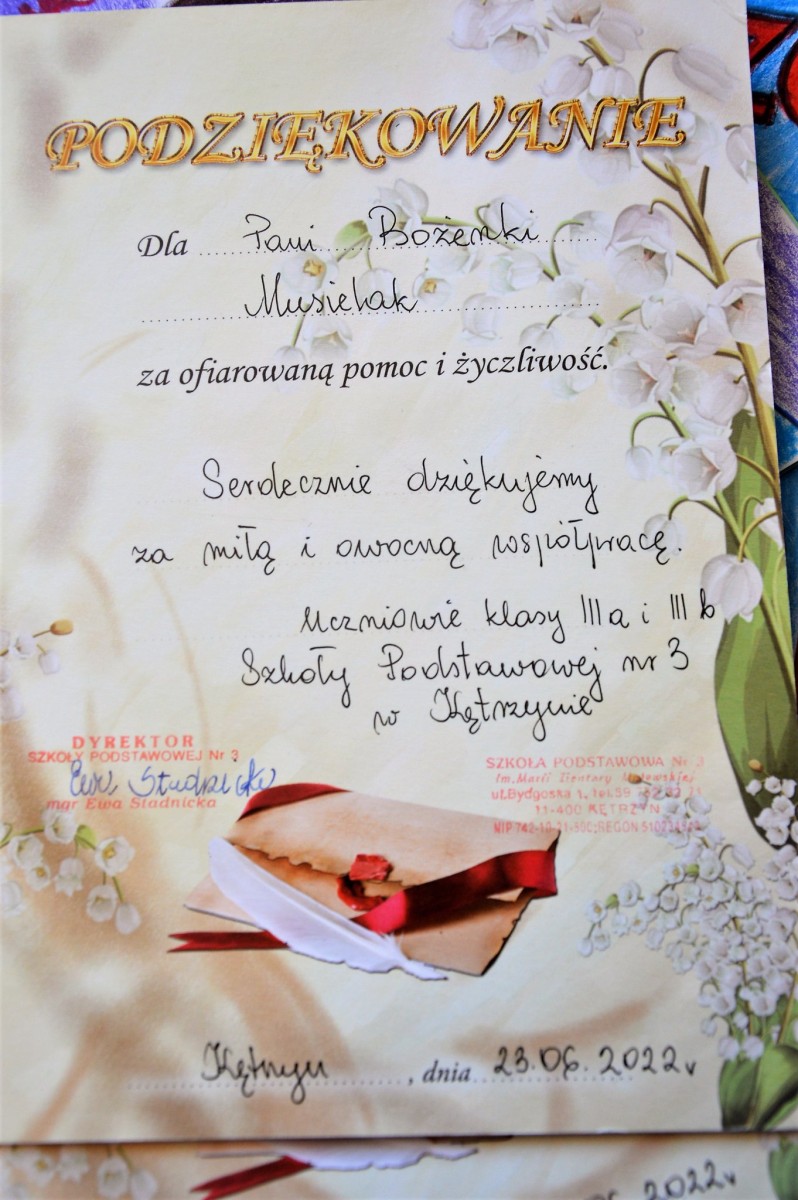 PODZIĘKOWANIE
Dla Pani Bożenki
Musielak
za ofiarowaną pomoc i życzliwość.
Serdecznie dziękujemy
za miłą i owocną współpracę.
Uczniowie klasy III a i III b
Szkoły Podstawowej nr 3
w Kętrzynie
DYREKTOR
SZKOŁY PODSTAWOWEJ Nr 3
Ewa Stadnicka
mgr Ewa Stadnicka
SZKOŁA PODSTAWOWA Nr 3
Im. Marii Zientary
ul. Bydgoska 1, tel.
11-400 KĘTRZYN
NIP 742-10 REGON
Kętrzyn, dnia 23.06.2022r
2022r